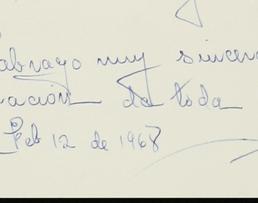 abrazo muy sincero
ación de toda
Feb 12 de 1968